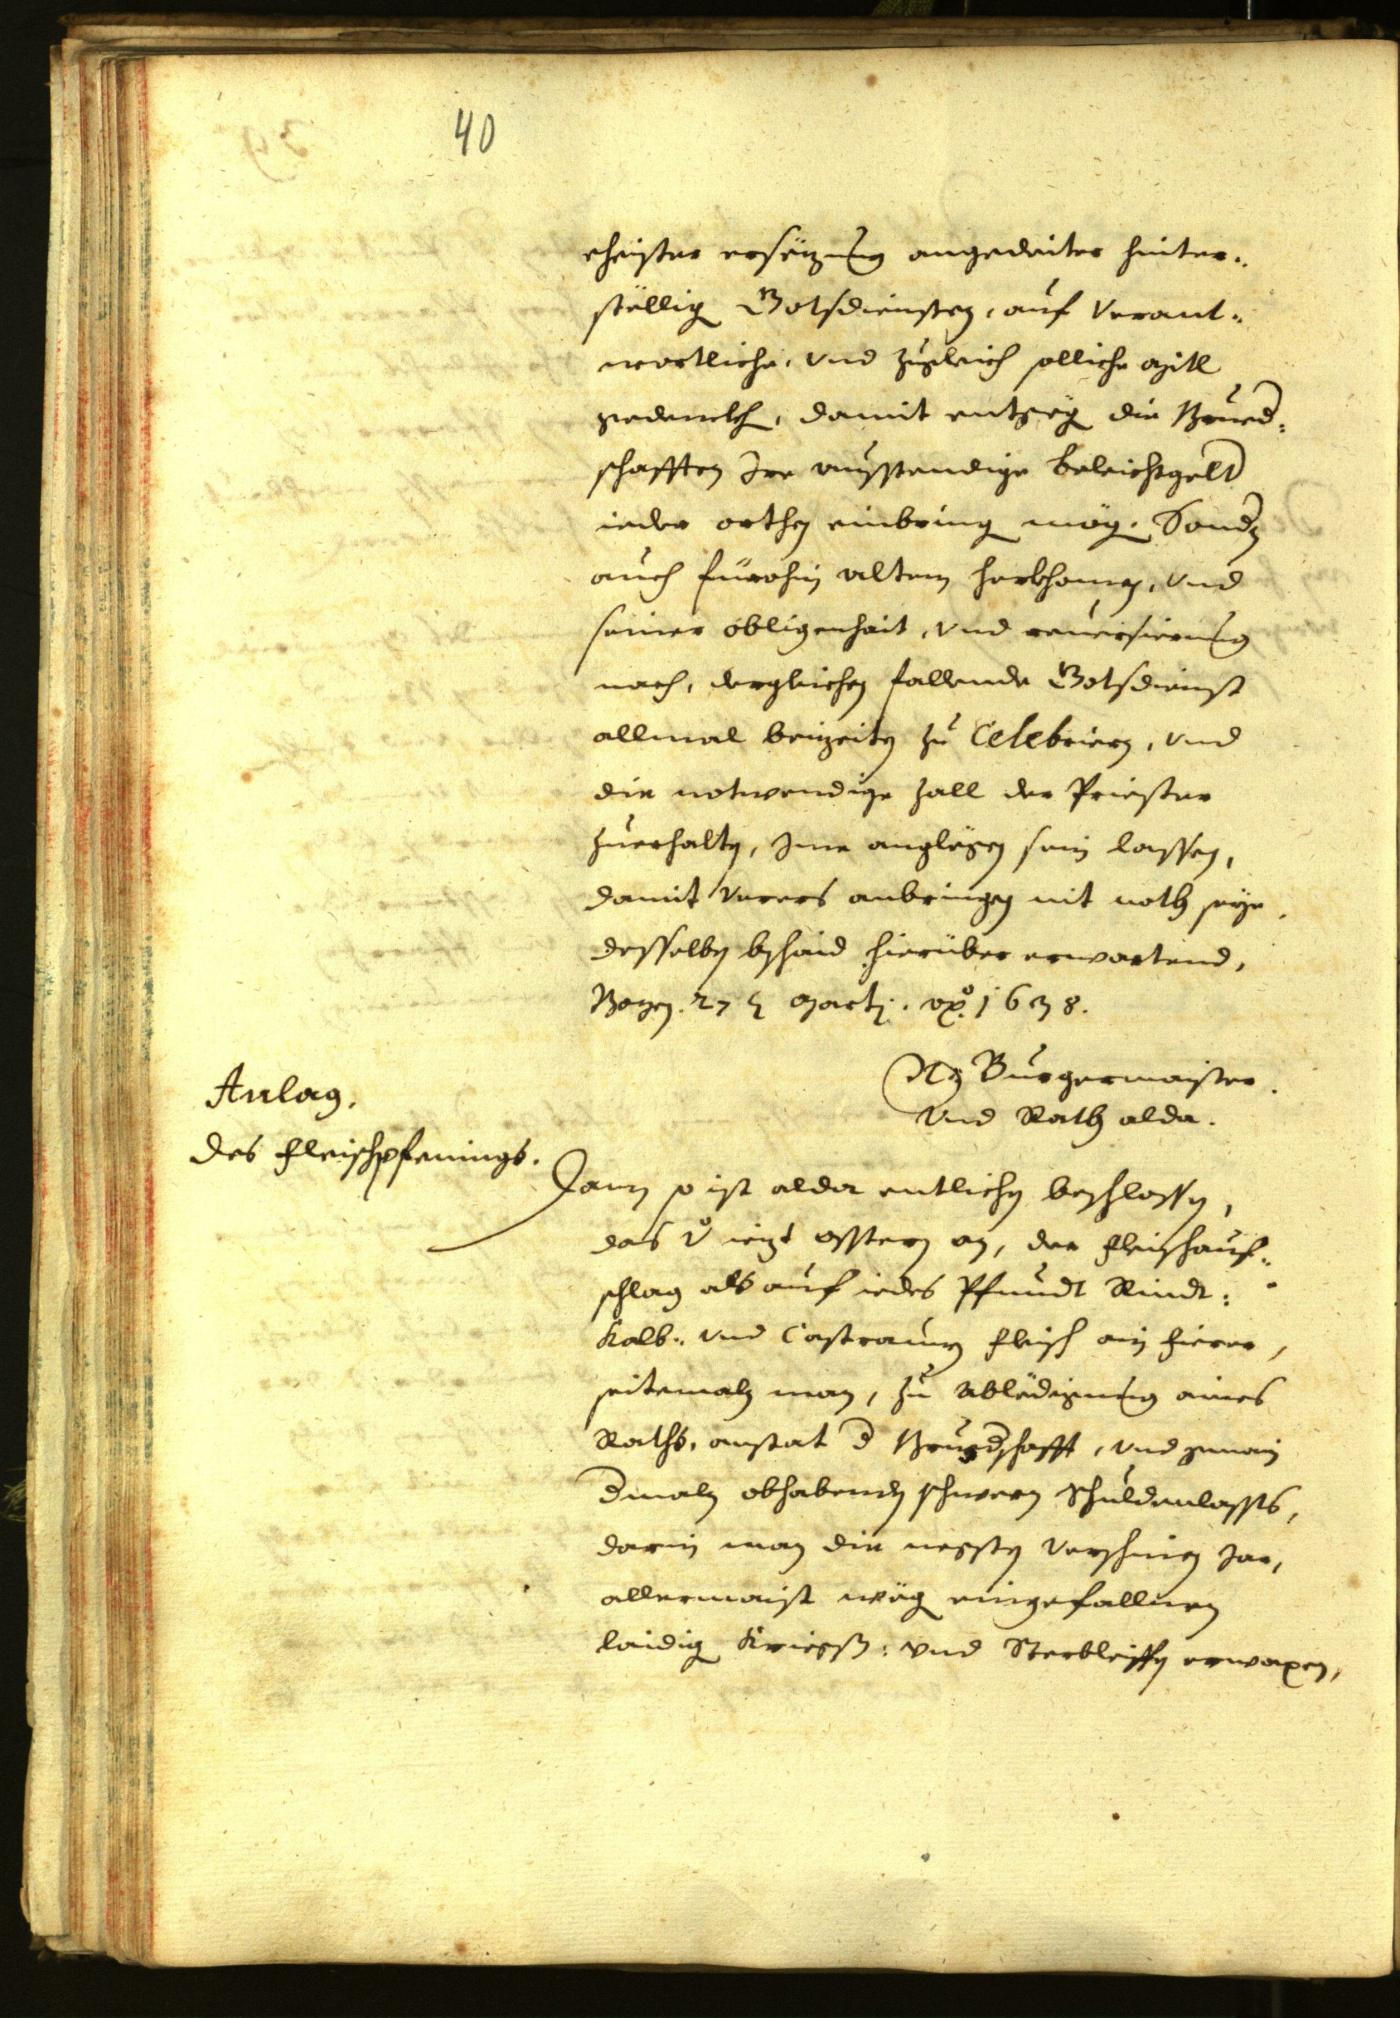 40
eheister ersëzung angedeiter hinter¬
stëllig Gotsdiensten, auf verant¬
wortliche, vnd zugleich solliche mitl
gedenckh, damit entgeg die Brued¬
schafften Ire ausstendige beleichtgelt
ieder orthen einbring mög. Sondn
auch fürohin altem herkhomen, vnd
seiner obligenhait, vnd reuersierung
nach, dergleichen fallende Gotsdienst
allmal beizeiten zu Celebriern, vnd
die notwendige zall der Priester
zuerhalten, Ime anglegen sein lassen,
damit verers anbringen nit noth seye,
desselben bschaid hierüber erwartend,
Bozen. 27 Martj. 1638.
N: Burgermaister
vnd Rath alda.
Anlag.
des fleischpfenings.
Dann so ist alda entlichen beschlossen,
das v iezt osstern an, der fleischauf¬
schlag als auf iedes Pfundt Rindt:
Kalb: vnd Castraunen fleisch ain fierer,
seitemaln man, zu ablëdigung aines
Raths, anstat d Bruedschafft, vnd gmain
dmaln obhabenden schwern Schuldenlassts,
darin man die negsten verschinen Jar,
allermaist wëg eingefallnen
laidig Kriegs: vnd Sterbleiffen erwaxen,